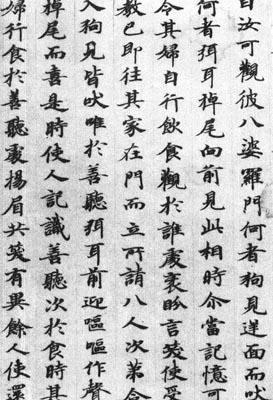 汝可觀彼八婆羅門何者狗見逆面而吠
何者弭耳掉尾向前見此相時尒當記憶可
令其婦自行飲食觀於誰處褰眄言笑使受
教已即往其家在門而立所請八人次第令
入狗見皆吠唯於善聽弭耳前迎嘔嘔作聲
掉尾而喜是時使人記識善聽次於食時其
婦行食於善聽處揚眉共笑有異餘人使還